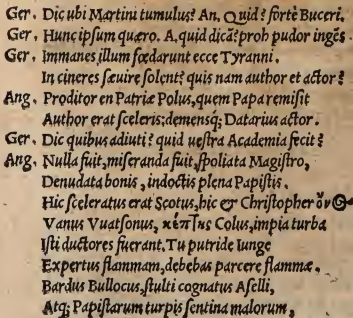 Ger. Dic ubi Martini tumulus? An. Quid? fortè Buceri.
Ger. Hunc ipsum quæro. A. quid dicã? proh pudor ingẽs.
Ger. Immanes illum fœdarunt ecce Tyranni.
In cineres sæuire solent? quis nam author et actor?
Ang. Proditor en Patriæ Polus, quem Papa remisit
Author erat sceleris; demensq; Datarius actor.
Ger. Dic quibus adiuti? quid uestra Academia fecit?
Ang. Nulla fuit, miseranda fuit, spoliata Magistro,
Denudata bonis, indoctis plena Papistis.
Hic sceleratus erat Scotus, hic & Christopher ὂν
Vanus Vuatsonus, Colus, impia turba
Isti ductores fuerant. Tu putride Iunge
Expertus flammam, debebas parcere flammæ.
Bardus Bullocus, stulti cognatus Aselli,
Atq; Papistarum turpis sentina malorum,